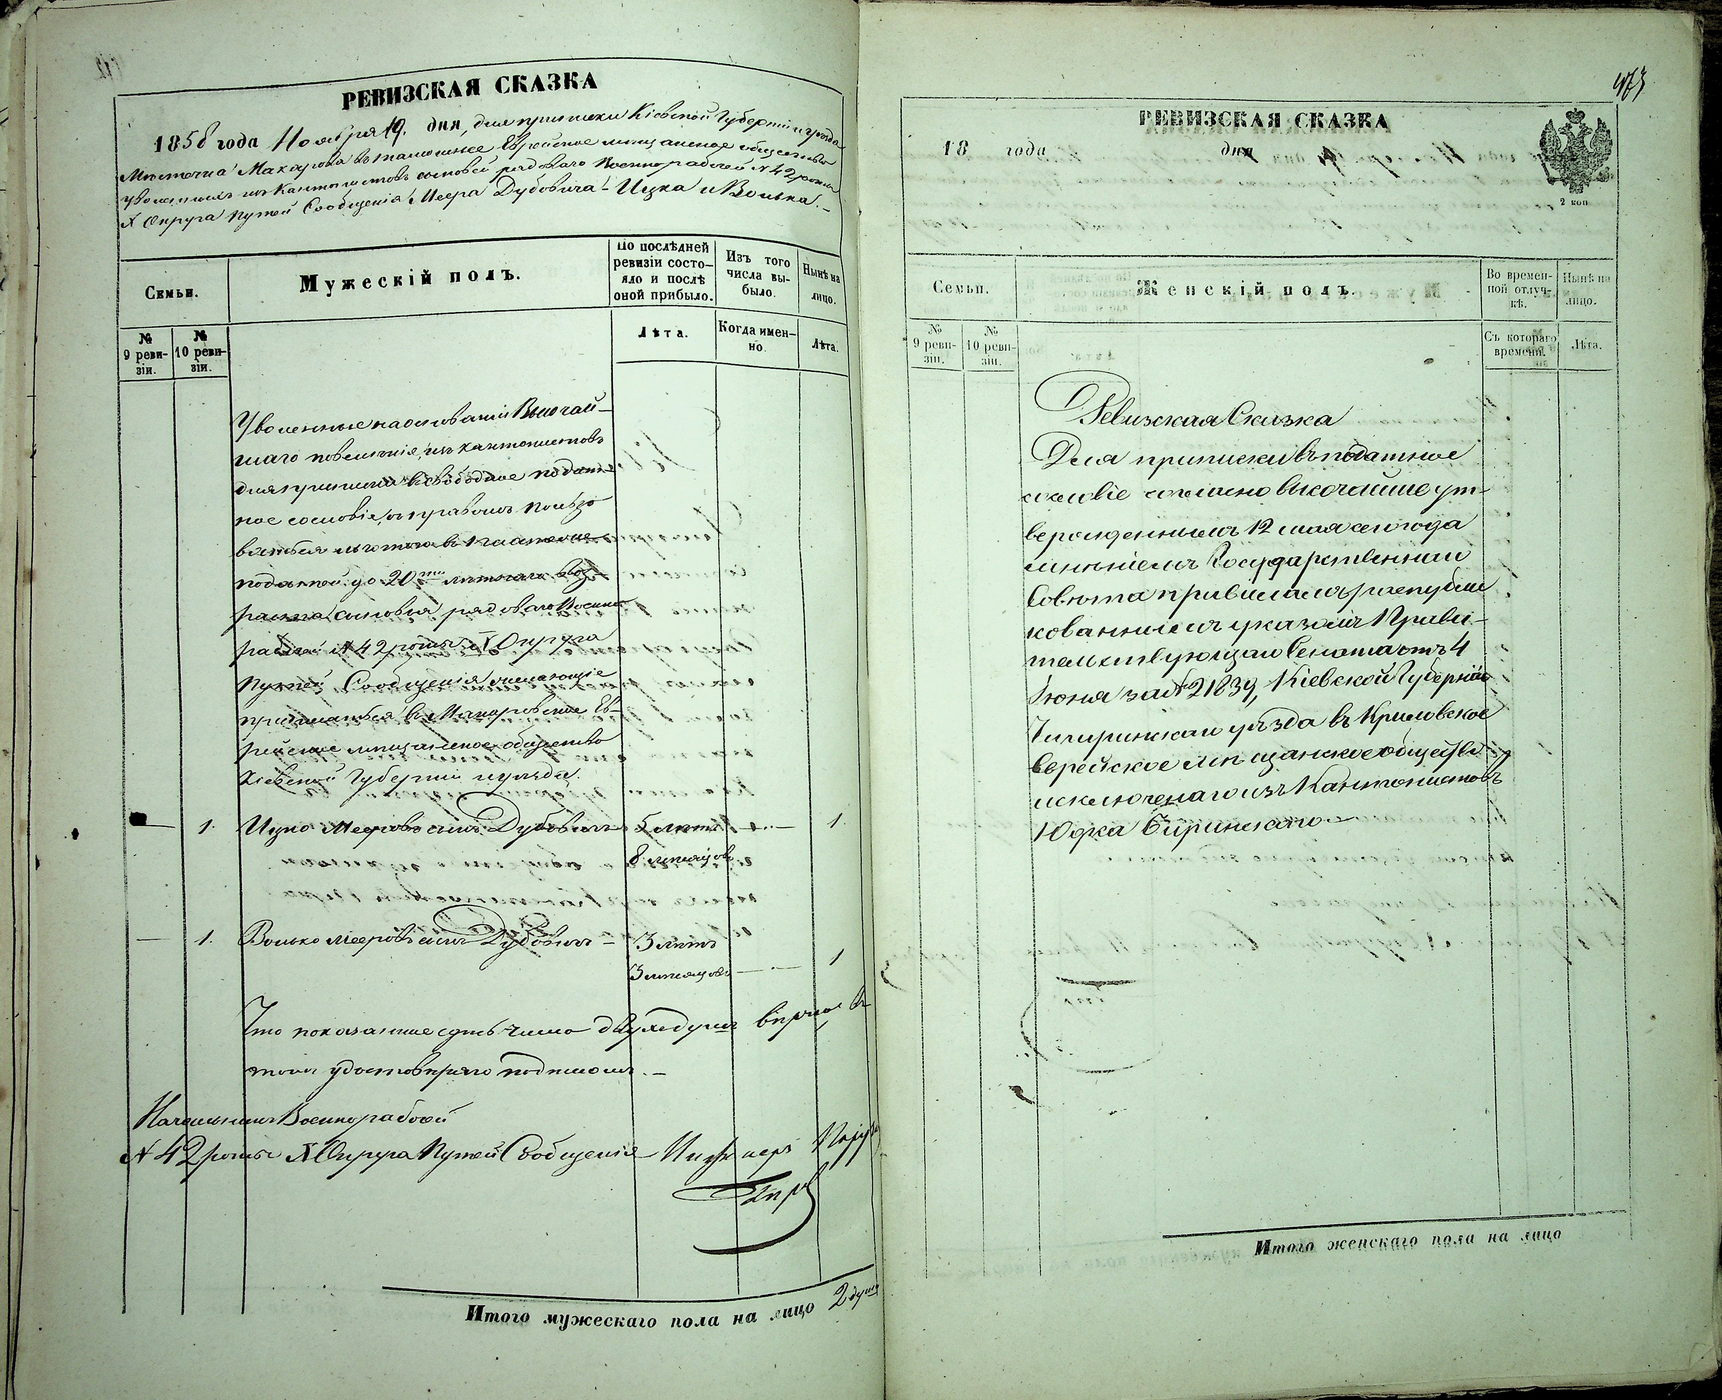 РЕВИЗСКАЯ СКАЗКА
1858 года Ноября 19. дня, для приписки Кіевской Губерніи и уѣзда
Мѣстечка Макарова въ тамошнее Еврейское мѣщанское общество
уволенныхъ изъ Кантонистовъ сыновей рядоваго Военнорабочей № 42 роты
X Округа Путей Сообщенія Меера Дубовича – Ицка и Волька. –
Семьи.
Мужескій полъ.
По послѣдней ревизіи состо-
яло и послѣ
оной прибыло.
Изъ того
числа вы-
было.
Нынѣ на
лицо.
№
9 реви-
зіи.
№
10 реви-
зіи.
Лѣта.
Когда имен-
но.
Лѣта.
Уволенные на основаніи Высочай-
шаго повелѣнія, изъ кантонистовъ
для приписки въ свободное подат-
ное сословіе, съ правомъ пользо
ваться льготою въ платеже
податей до 20ти лѣтняго воз-
раста сыновья рядоваго Военно
рабочей № 42 роты X Округа
Путей Сообщенія желающіе
приписаться въ Макаровское Ев-
рейское мѣщанское общество
Кіевской Губерніи и уѣзда.
— 1. Ицко Мееровъ сынъ Дубовичъ 5 лѣтъ — 1.
8 мѣсяцовъ
— 1. Волько Мееровъ сынъ Дубовичъ – 3 лѣтъ
3 мѣсяцовъ — 1
Что показанное здѣсь число двухъ душъ вѣрно, въ
томъ удостовѣряю подписомъ. –
Начальникъ Военнорабочей
№ 42 роты X Округа Путей Сообщенія Инженеръ
Итого мужескаго пола на лицо 2 души
473
РЕВИЗСКАЯ СКАЗКА
18 года дня
2 коп
Семьи.
Женскій полъ.
Во времен-
ной отлуч-
кѣ.
Нынѣ на
лицо.
№
9 реви-
зіи.
№
10 реви-
зіи.
Съ котораго
времени.
Лѣта.
Ревизская Сказка
Для приписки въ податное
сословіе согласно высочайше ут-
вержденнымъ 12 мая сего года
мнѣніемъ Государственнаго
Совѣта правиламъ, распубли
кованнымъ указомъ Прави-
тельствующаго Сената отъ 4
Іюня за № 21839, Кіевской Губерніи
Чигиринскаго уѣзда въ Крыловское
Еврейское мѣщанское общество
исключенаго изъ Кантонистовъ
Юдка –
Итого женскаго пола на лицо